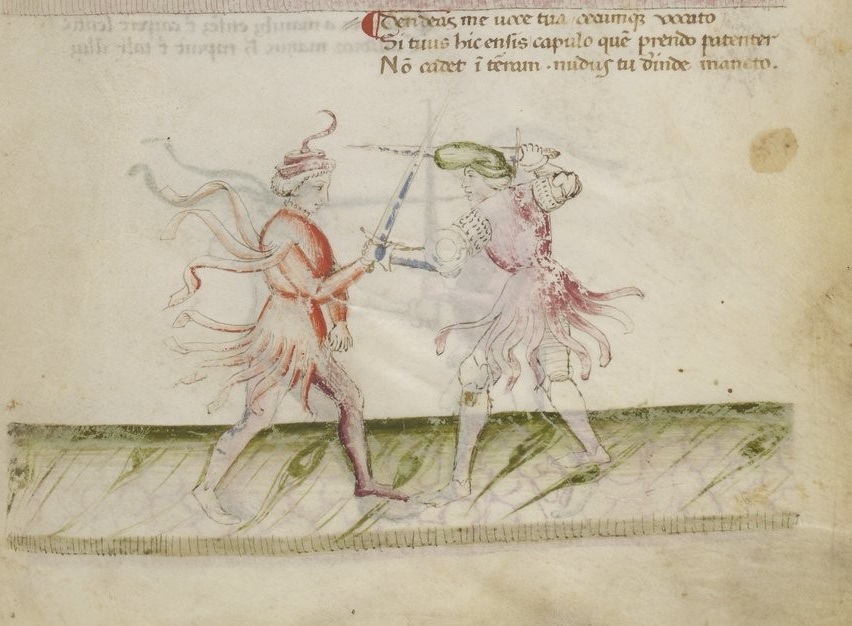 deas me uoce tua cecumqȝ uocato
Si tuus hic ensis capulo quē prendo patenter
Nō cadet ī terram . nudus tu d̄inde maneto.